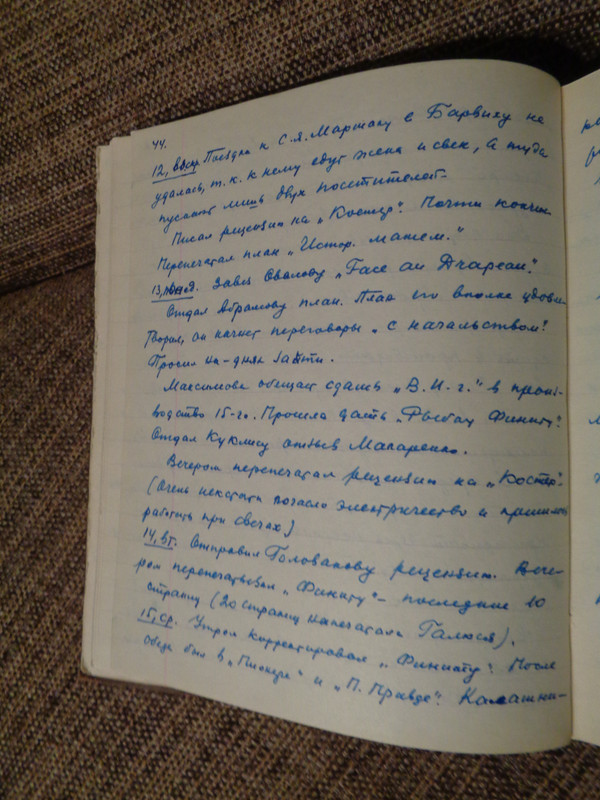 44.
12, воск. Поездка к С.Я. Маршаку в Барвиху не
удалась, т.к. к нему едут жена и свек, а туда
пускают лишь двух посетителей.
Писал рецензию на „Костер". Почти кончил.
Перепечатал план „Истор. матем."
13, пон. Завез „Face au Drapeau".
Отдал Абрамову план. План его вполне удовле-
творил, он начнет переговоры „с начальством".
Просил на-днях зайти.
Максимова обещает сдать „В.И.г." в произ-
водство 15-го. Просила дать „Рыбак Финиту".
Отдал Куклису отзыв Макаренко.
Вечером перепечатал рецензию на „Костер".
(Очень некстати погасло электричество и пришлось
работать при свечах)
14, вт. Отправил Голованову рецензию. Вече-
ром перепечатывал „Финиту" – последние 10
страниц (20 страниц напечатала Галюся).
15, ср. Утром корректировал „Финиту". После
обеда был в „Пионере" и „П. Правде". Калашни-